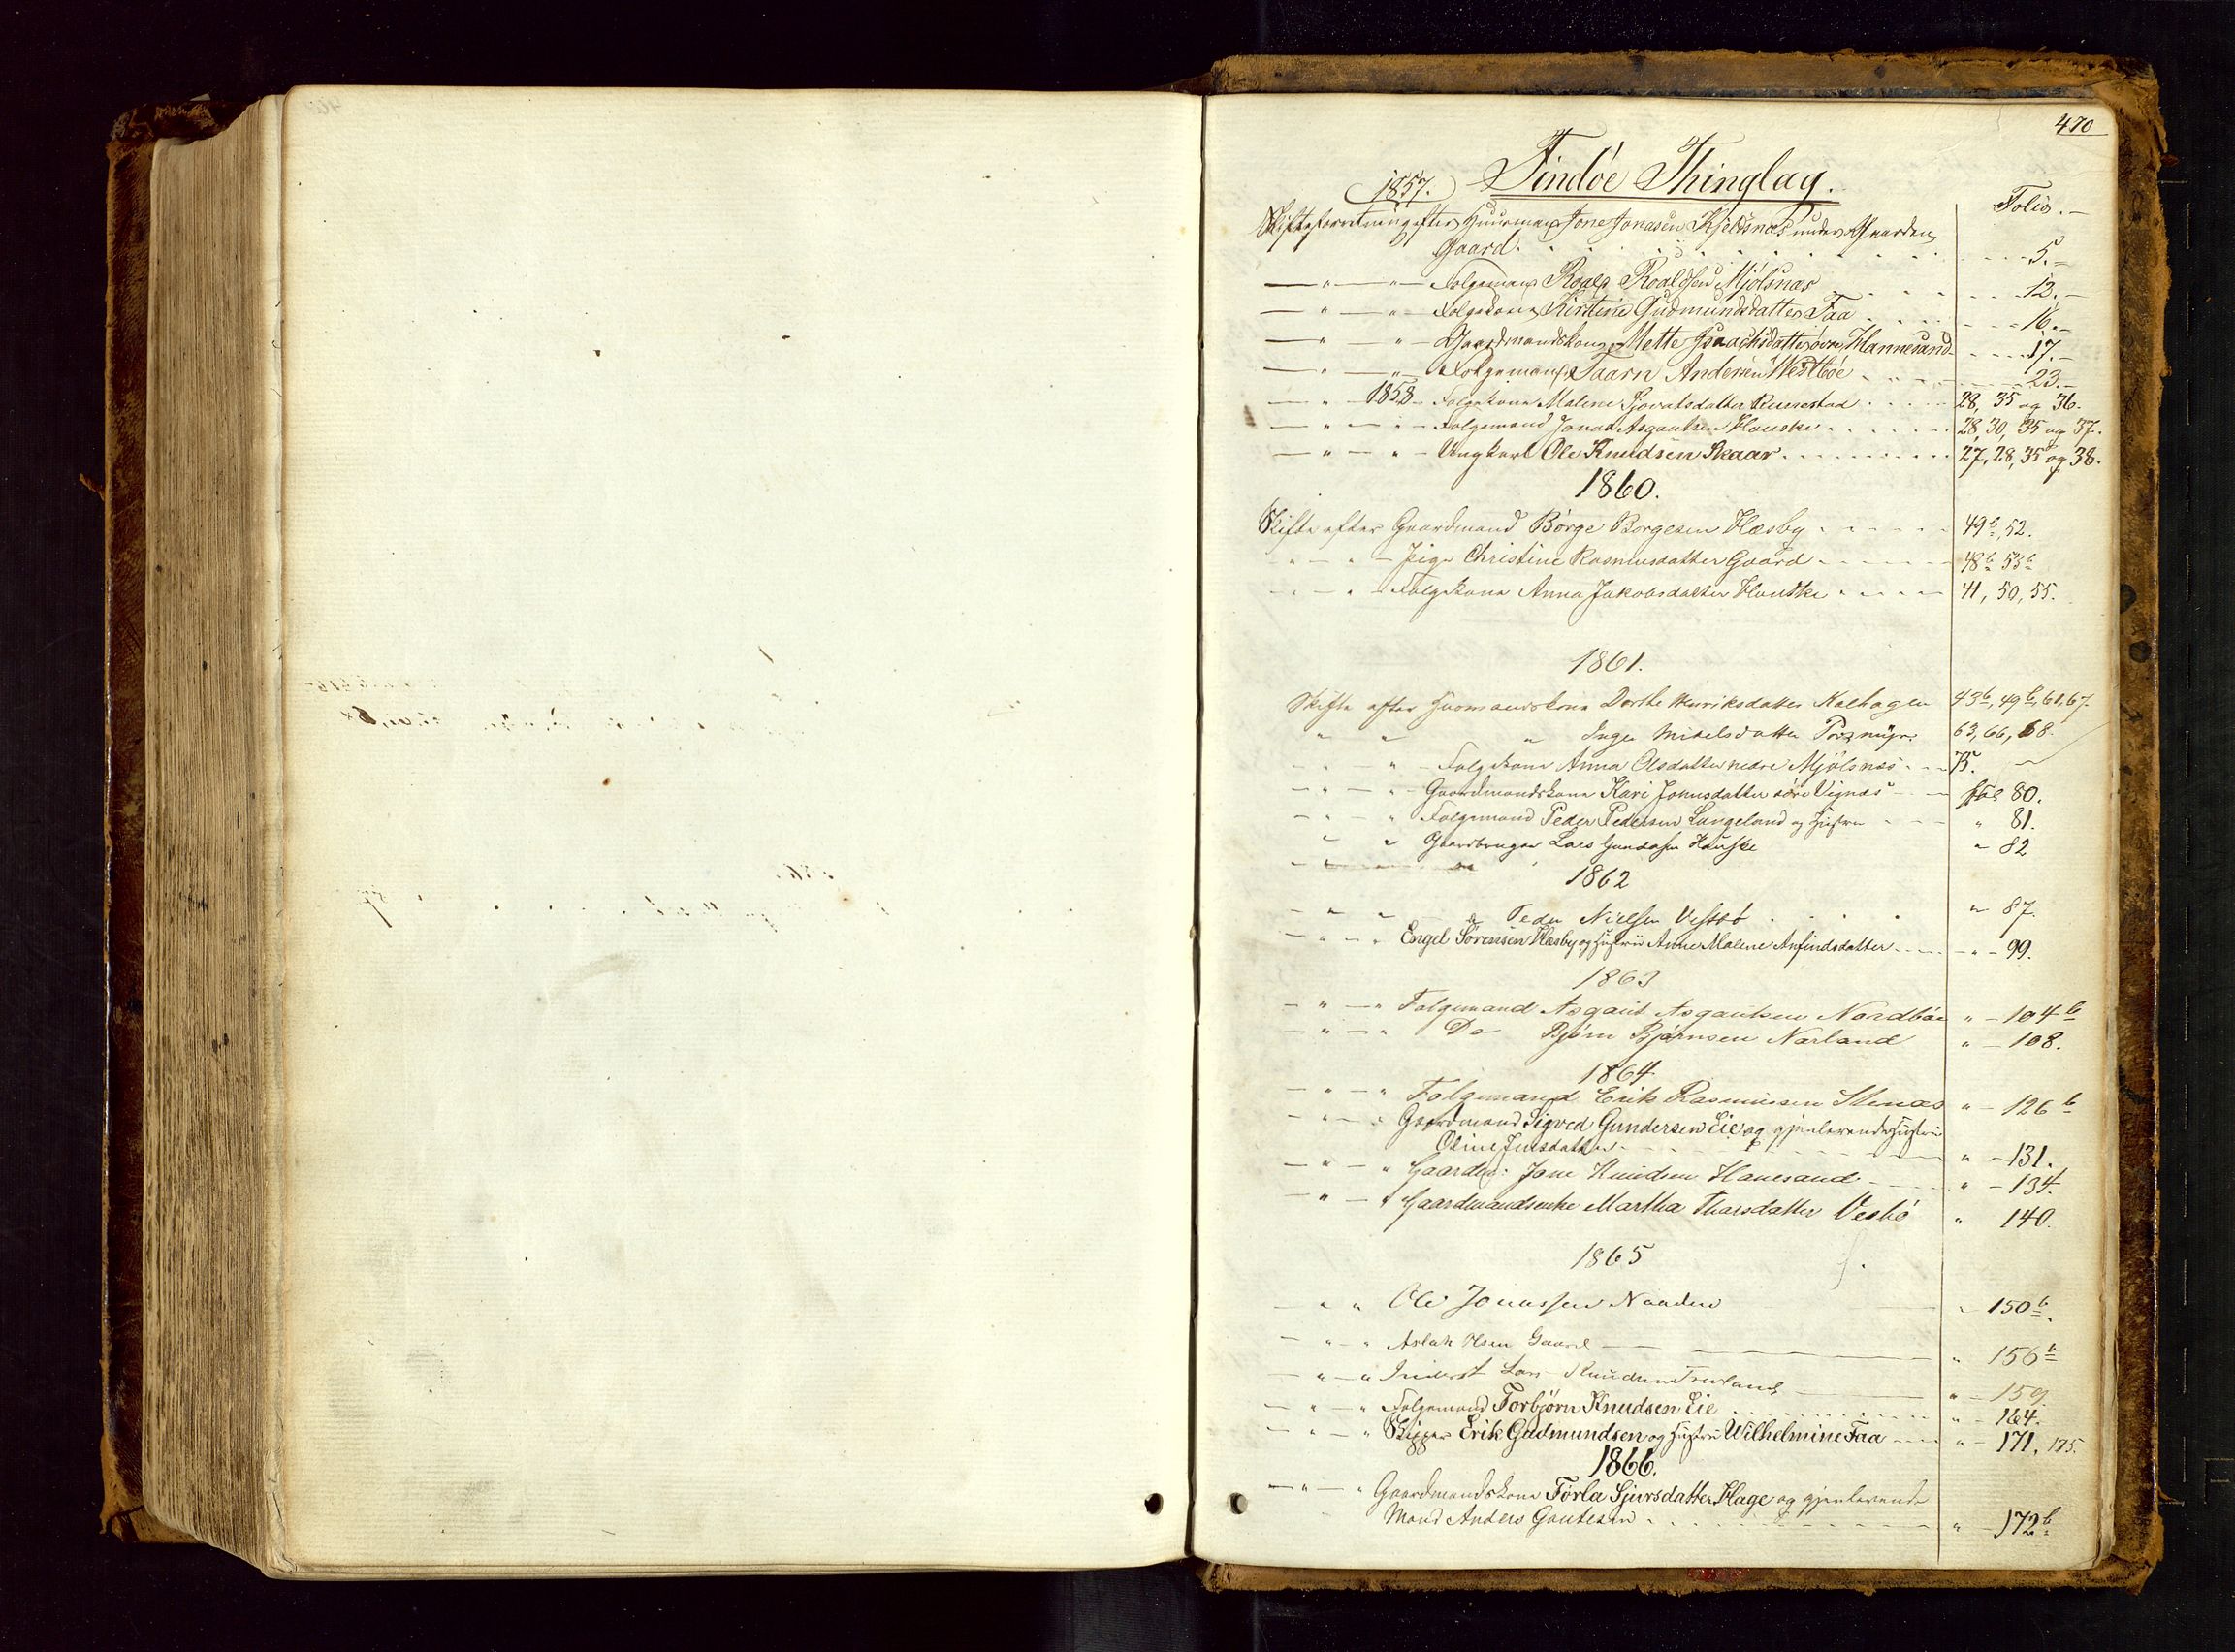 470
Findöe Thinglag.
1857.
Folio.-
Skifteforretning efter Huusmand Jone Jonasen Kjeldsnæs under Gaarden
Gaard. 5.-
— " — " — Folgemand Roald Roaldsen Mjölsnæs 12.-
— " — " — Folgekone Kirstine Gudmundsdatter Faa 16.-
— " — " — Gaardmandskone Mette Isaachsdatter övre Hannesand 17.-
— " — " — Folgemand Taarn Andersen Westböe 23.-
— " — 1858 — Folgekone Malene Sjovatsdatter 28, 35 og 36.
— " — " — Folgemand Jonas Asgautsen Hauske 28, 30, 35 og 37.
— " — " — Ungkarl Ole Knudsen Skaar 27, 28, 35 og 38.
1860.
Skifte efter Gaardmand Börge Borgesen Hæsby 49b, 52.
— " — " — Pige Christine Rasmusdatter Gaard 48b 53b
— " — " — Folgekone Anna Jakobsdatter Hauske 41, 50, 55.
1861.
Skifte efter Huusmandskone Dorthe Henriksdatter Kalhagen 43b, 49b, 61, 67.
" " " Inger Mikelsdatter 63, 66, 68.
— " — " — Folgekone Anna Olsdatter nedre Mjölsnæs 75.
— " — " — Gaardmandskone Kari Johnsdatter söre Vignæs fol 80.
— " — " Folgemand Peder Pedersen Langeland og Hustru " 81.
" " Gaardbruger Lars Gundersen Hauske " 82
1862
— " — " — Peder Nielsen Vestbö " 87.
— " — " Engel Sörensen Hæsby og Hustru Anne Malene Anfindsdatter — " — 99.
1863
— " — " Folgemand Asgaut Asgautsen Nordböe " — 104b
— " — " Do Björn Björnsen Narland " — 108.
1864
— " — " Folgemand Erik Rasmussen Stenæs " — 126b
— " — " Gaardmand Sigved Gundersen Eie og gjenlevende Hustru
Oline Jensdatter " — 131.
— " — " Gaardm. Jone Knudsen Hanesand " — 134.
— " — " Gaardmandsenke Martha Tharsdatter Vesbö " 140.
1865
— " " Ole Jonassen Naaden " 150b.
— " — " Aslak Gaard " 156b
— " — " Inderst Lars Knudsen " — 159
— " — " Folgemand Torbjörn Knudsen Eie " — 164.
— " — " Skipper Erik Gudmundsen og Hustru Wilhelmine Faa " — 171, 175.
1866.
— " — " Gaardmandskone Törla Sjursdatter Hage og gjenlevende
Mand Anders Gautesen " — 172b